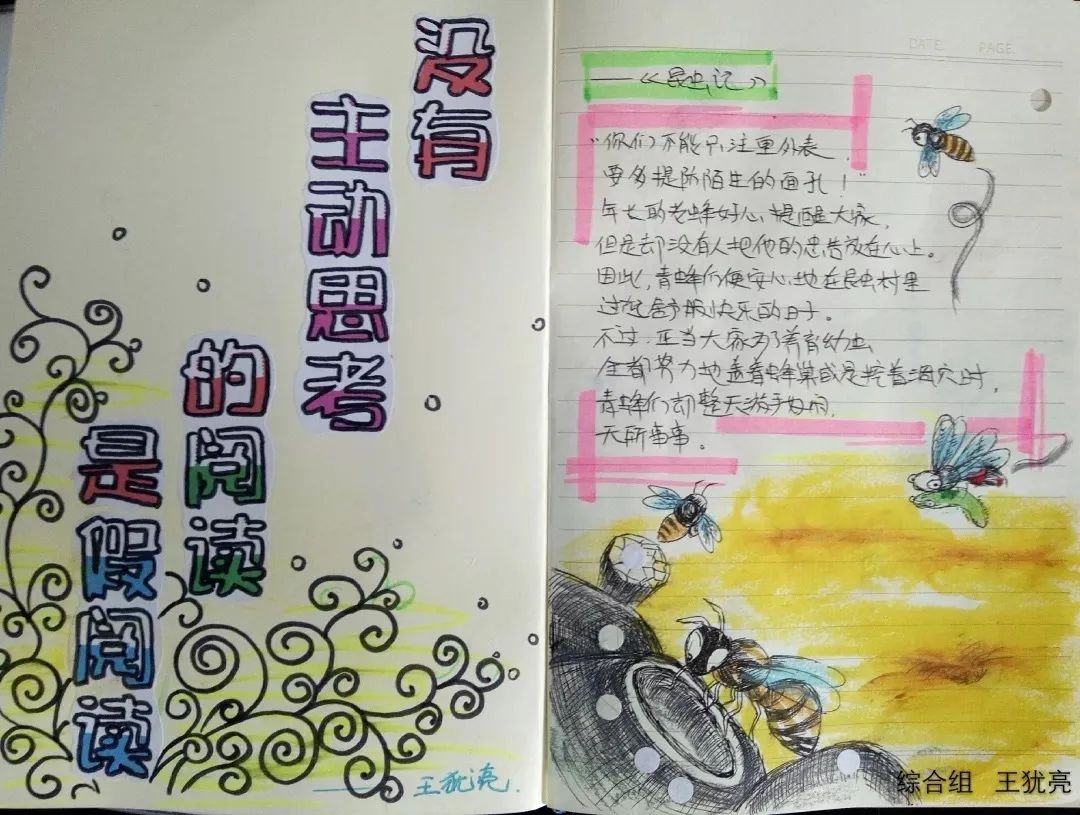 没有
主动思考
的阅读
是假阅读
王犹亮.
DATE PAGE
——《昆虫记》
"你们不能只注重外表,
要多提防陌生的面孔!"
年长的老蜂好心提醒大家,
但是却没有人把他的忠告放在心上。
因此,青蜂们便安心地在昆虫村里
过起舒服快乐的日子。
不过,正当大家为了养育幼虫
全都努力地盖着蜂巢或是挖着洞穴时,
青蜂们却整天游手好闲,
无所事事。
综合组 王犹亮